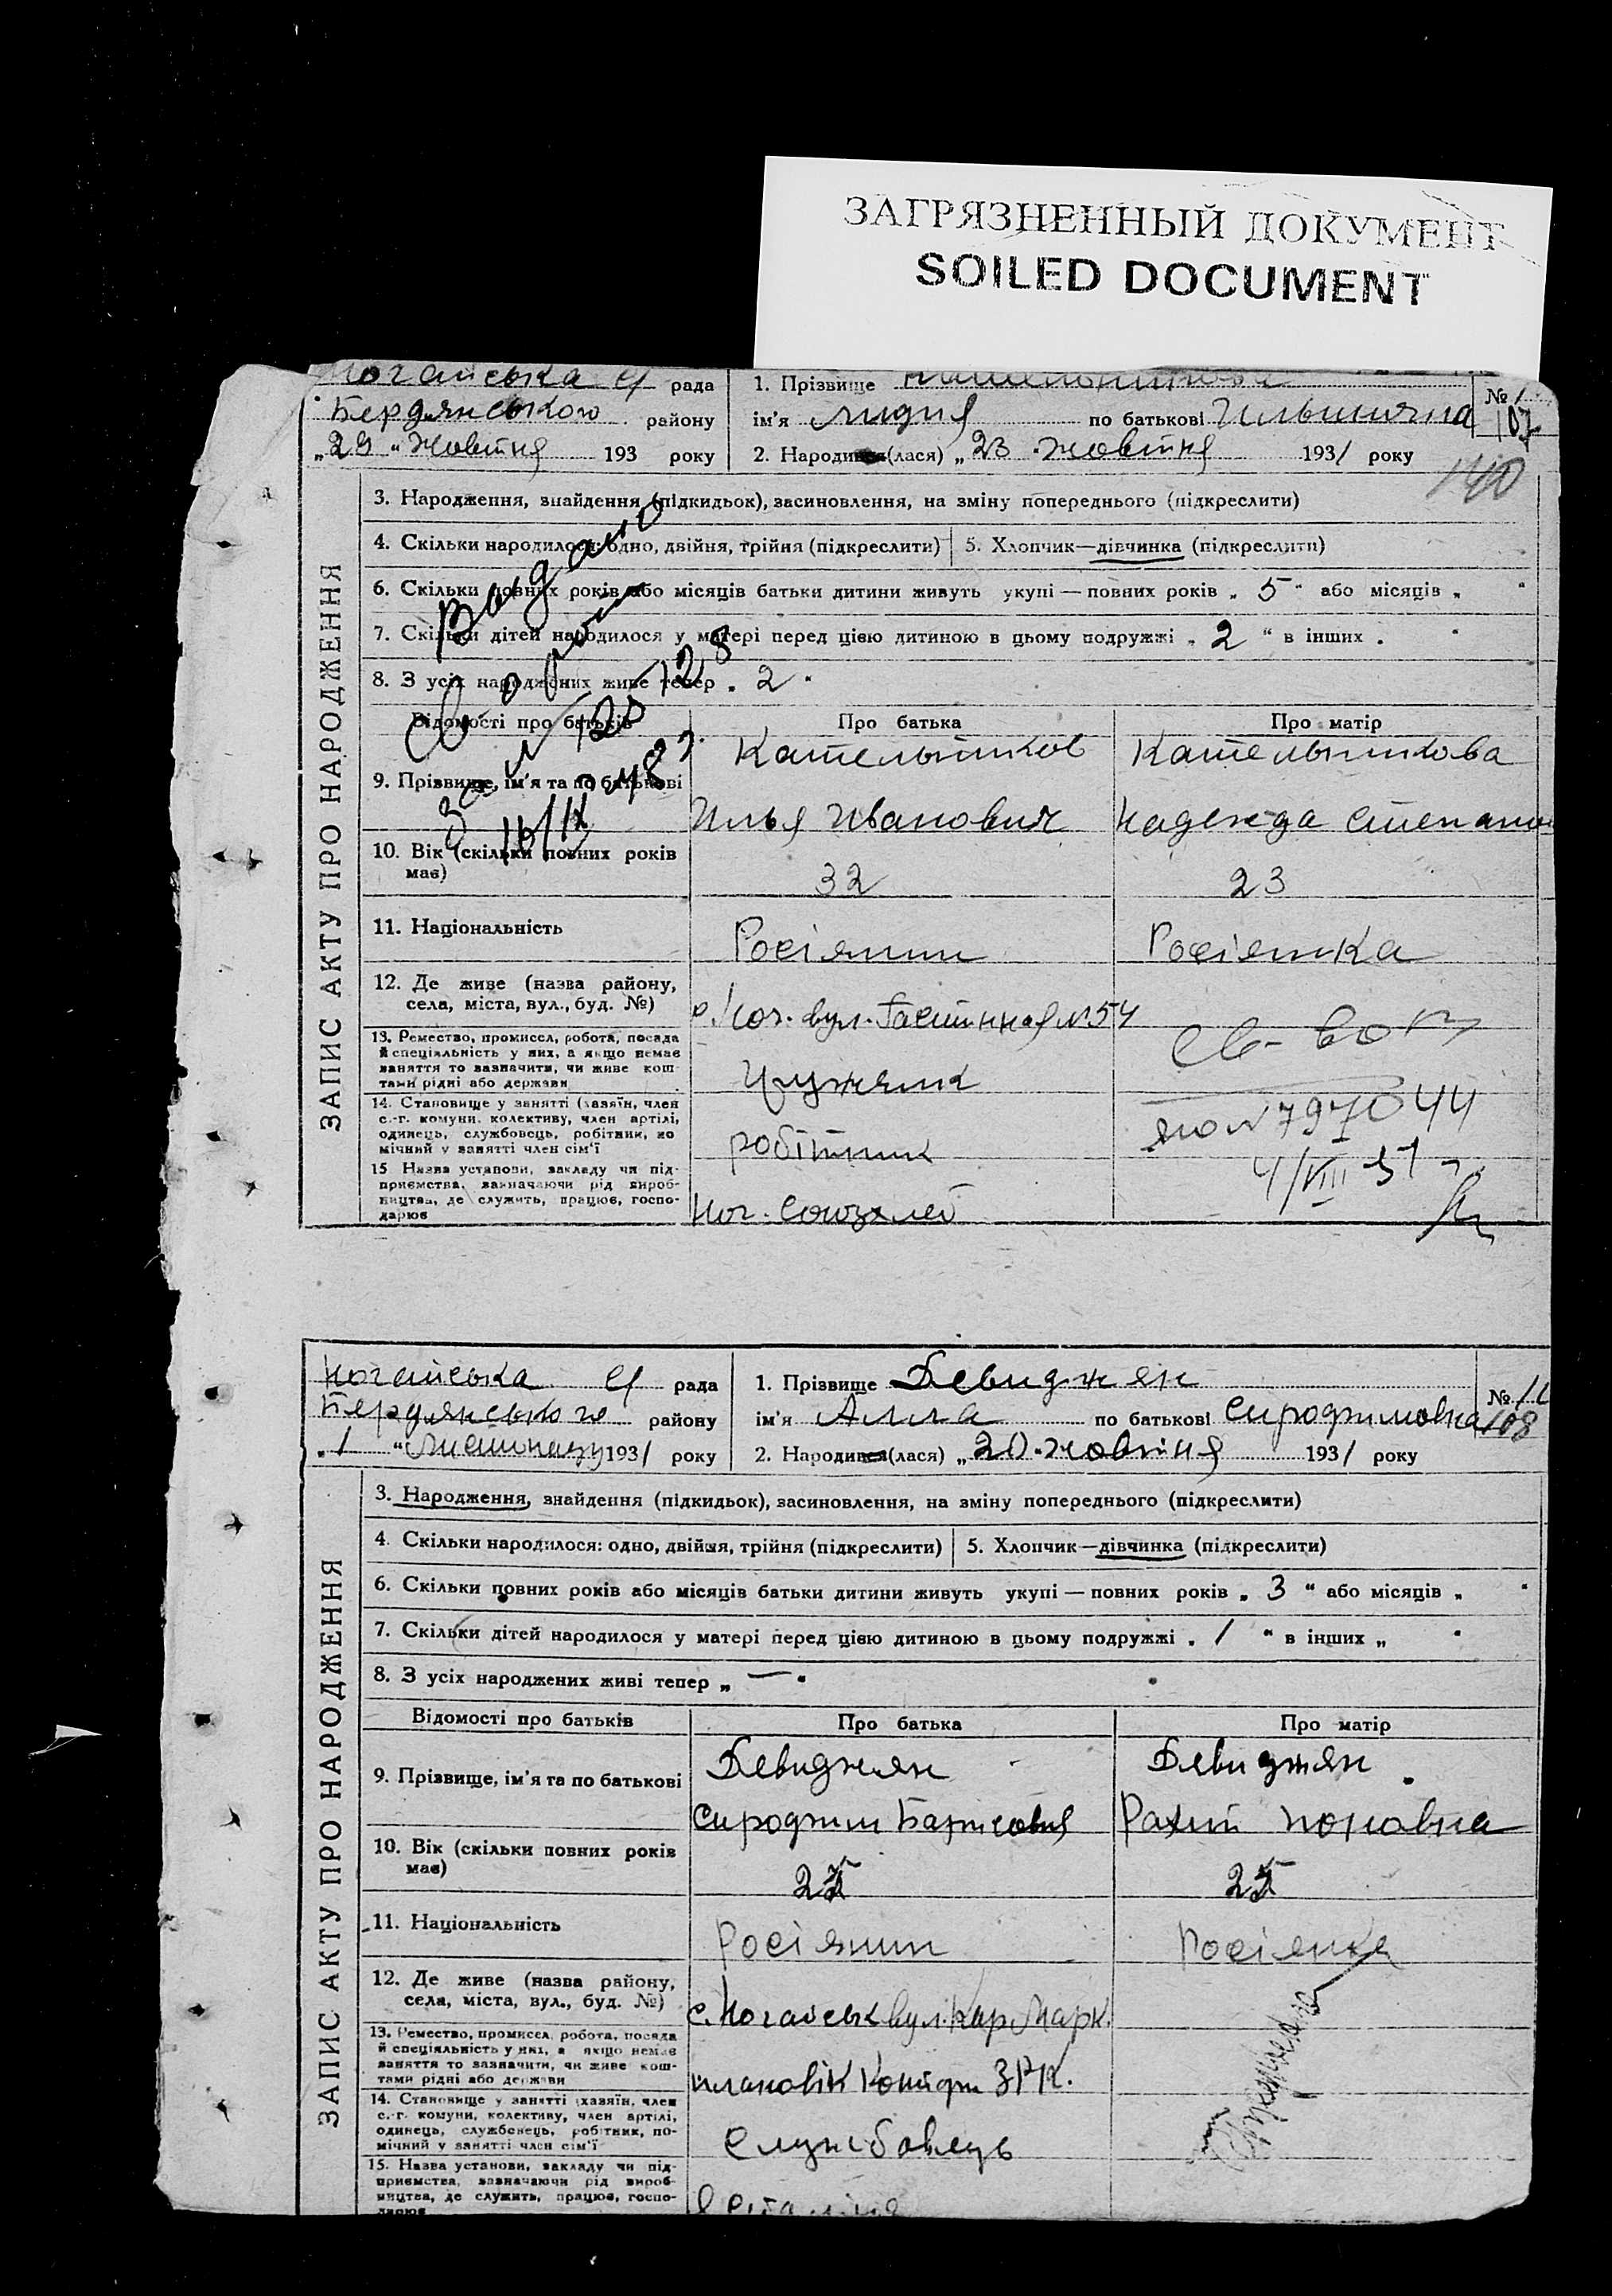 ЗАГРЯЗНЕННЫЙ ДОКУМЕНТ
SOILED DOCUMENT
Ногайська с/ рада
Бердянського району
„29 “ Жовтня 193 року
1. Прізвище
ім'я Лидия по батькові Ильинична
2. Народився(лася) „23 “ жовтня 1931 року
№
107
140
ЗАПИС АКТУ ПРО НАРОДЖЕННЯ
3. Народження, знайдення (підкидьок), засиновлення, на зміну попереднього (підкреслити)
4. Скільки народилося: одно, двійня, трійня (підкреслити)
5. Хлопчик—дівчинка (підкреслити)
6. Скільки повних років або місяців батьки дитини живуть укупі — повних років „ 5 “ або місяців „ “
7. Скільки дітей народилося у матері перед цією дитиною в цьому подружжі „ 2 “ в інших „ “
8. З усіх народжених живе тепер „ 2 “
Выдано
Відомості про батьків
Про батька
Про матір
9. Прізвище, ім'я та по батькові
Кательников
Илья Иванович
Кательникова
Надежда Степанов
10. Вік (скільки повних років має)
32
23
11. Національність
Росіянин
Росіянка
12. Де живе (назва району, села, міста, вул., буд. №)
вул. №54
13. Ремество, промисел, робота, посада й спеціяльність у них, а якщо немає заняття то зазначити, чи живе кош-тами рідні або держави
14. Становище у занятті (хазяїн, член с.-г. комуни, колективу, член артілі, одинець, службовець, робітник, по-мічний у занятті член сім'ї
робітник
15 Назва установи, закладу чи під-приємства, зазначаючи рід вироб-ництва, де служить, працює, госпо-дарює
Ног. Союзхлеб
Св-во
797044
4/VIII 51 г.
Ногайська с/ рада
Бердянського району
„1 “ Листопаду 1931 року
1. Прізвище Девиджян
ім'я Алла по батькові Сироджиловна
2. Народився(лася) „20 “ жовтня 1931 року
№
108
ЗАПИС АКТУ ПРО НАРОДЖЕННЯ
3. Народження, знайдення (підкидьок), засиновлення, на зміну попереднього (підкреслити)
4. Скільки народилося: одно, двійня, трійня (підкреслити)
5. Хлопчик—дівчинка (підкреслити)
6. Скільки повних років або місяців батьки дитини живуть укупі — повних років „ 3 “ або місяців „ “
7. Скільки дітей народилося у матері перед цією дитиною в цьому подружжі „ 1 “ в інших „ “
8. З усіх народжених живі тепер „ — “
Відомості про батьків
Про батька
Про матір
9. Прізвище, ім'я та по батькові
Девиджян
Девиджян
10. Вік (скільки повних років має)
11. Національність
Росіянин
Росіянка
12. Де живе (назва району, села, міста, вул., буд. №)
с. Ногайськ вул. Кар Марк.
13. Ремество, промисел, робота, посада й спеціяльність у них, а якщо немає заняття то зазначити, чи живе кош-тами рідні або держави
плановік
14. Становище у занятті (хазяїн, член с.-г. комуни, колективу, член артілі, одинець, службовець, робітник, по-мічний у занятті член сім'ї
службовець
15. Назва установи, закладу чи під-приємства, зазначаючи рід вироб-ництва, де служить, працює, госпо-дарює